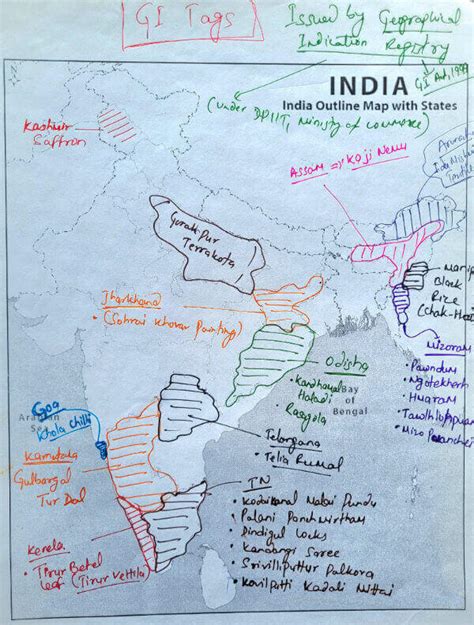 GI Tags
Issued by Geographical
Indication Registry
GI Act, 1999
(under DPIIT, Ministry of commerce)
INDIA
India Outline Map with States
Kashmir
Saffron
Assam ⇒ Koji Nemu
Gorakhpur
Terrakota
Black
Rice
Jharkhand
• (Sohrai Khovar Painting)
Mizoram
• Pawndum
• Ngotekherh
• Hmaram
• Tawlhlopuan
• Mizo Puanchei
Odisha
• Kandhamal
Haladi
• Rasgola
Bay
of
Bengal
Goa
Khola chilli
Sea
Karnataka
Gulbarga
Tur Dal
Telangana
• Telia Rumal
TN
• Kodaikanal Malai Pundu
• Palani Panchamirtham
• Dindigul Locks
• Kandangi Saree
• Srivilliputtur Palkova
• Kovilpatti Kadali Mittai
Kerela
• Tirur Betel
leaf (Tirur Vettila)